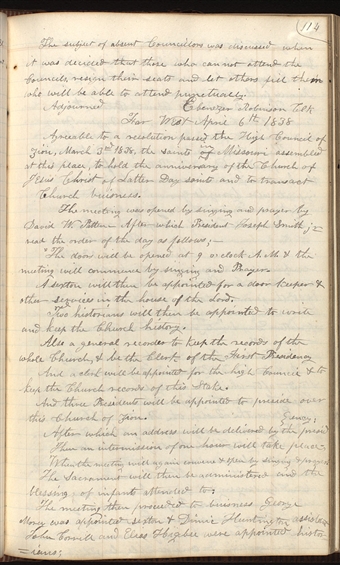 114
The subject of absent Councillors was discussed when
it was decided that those who cannot attend the
Councils, resign their seats and let others fill them
who will be able to attend punctually.
Adjourned Ebenezer Robinson Clk
Far West April 6th 1838
Agreeable to a resolution passed the High Council of
Zion, March 3rd 1838. the saints in Missouri assembled
at this place, to hold the anniversary of the Church of
Jesus Christ of Latter Day saints and to transact
Church buisiness.
The meeting was opened by singing and prayer by
David W. Patten After which President Joseph Smith jr
read the order of the day as follows;—
"The door will be opened at 9 o clock A.M. & the
meeting will commence by singing and Prayer.
A sexton will then be appointed for a door keeper &
other services in the house of the Lord.
Two historians will then be appointed to write
and keep the Church history.
Also a general recorder to keep the records of the
whole Church, & be the Clerk of the First Presidency
And a clerk will be appointed for the high Council & to
keep the Church records of this Stake.
And three Presidents will be appointed to preside over
this Church of Zion.
After which an address will be delivered by the presi
dency;
Then an intermission of one hour will take place.
When the meeting will again convene & open by singing & prayer
The Sacrament will then be administered and the
blessing of infants attended to;
The meeting then proceeded to buisiness, George
Morey was appointed sexton & Dimic Huntington assistant
John Corrill and Elias Higbee were appointed histo-
=rians;